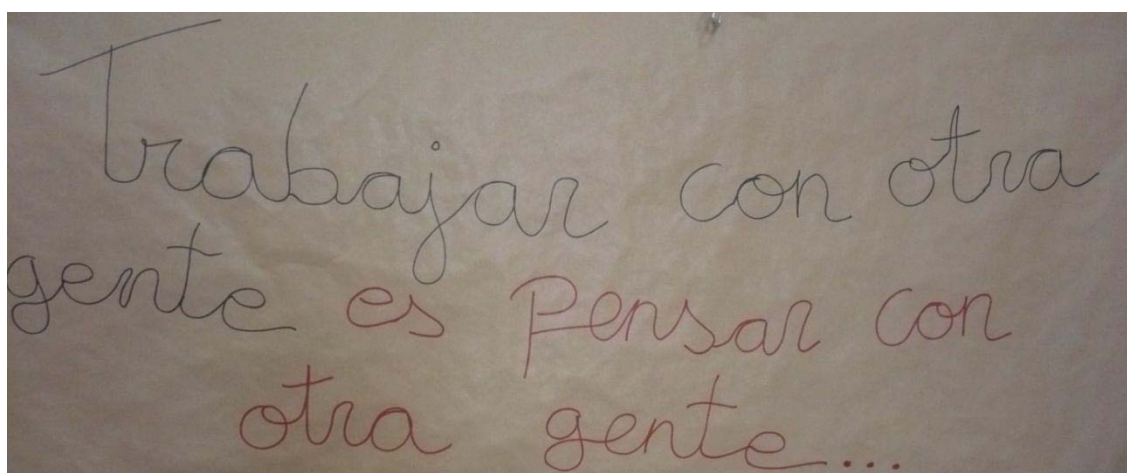 Trabajar con otra
gente es Pensar con
otra gente...